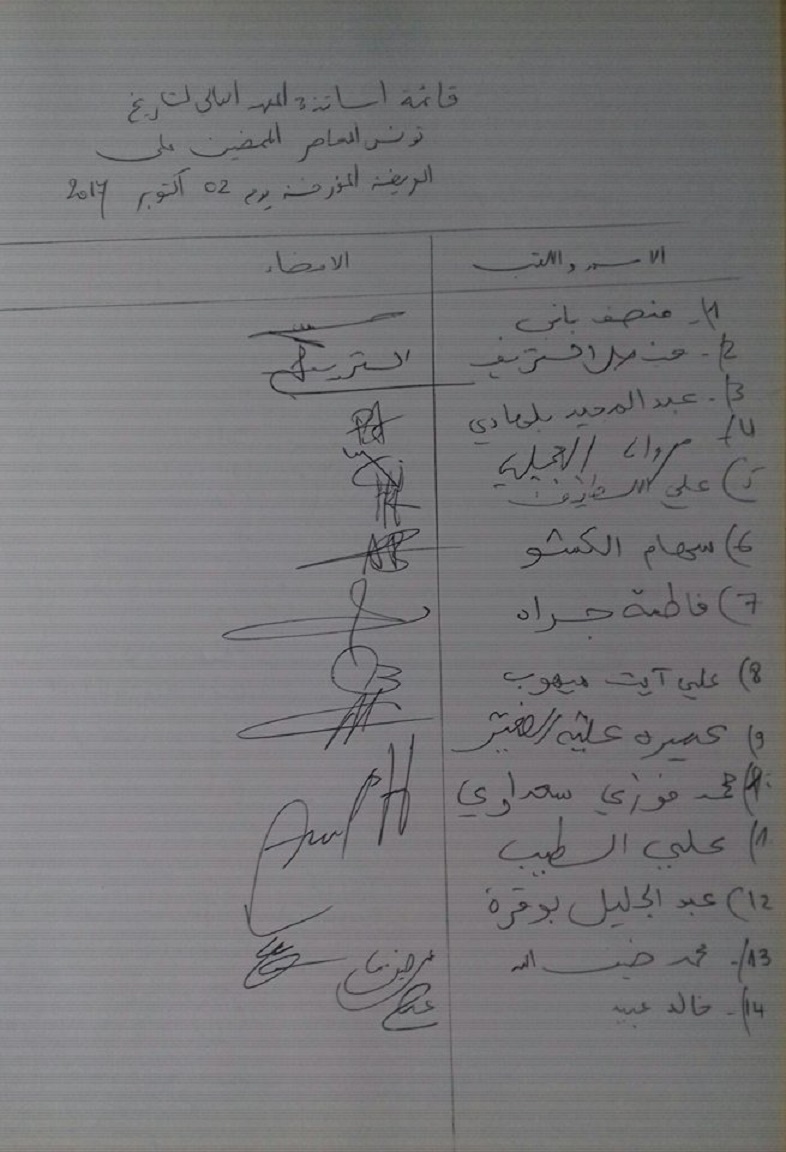 قائمة أساتذة المعهد العالي لتاريخ
تونس المعاصر الممضين على
العريضة المؤرخة يوم 02 أكتوبر 2017
الاسم واللقب
الامضاء
1/- منصف باني
2/-
3/- عبد المجيد بلهادي
4/- مروان العجيلي
5) علي
6) سهام الكشو
7) فاطمة جراه
8) علي آيت ميهوب
9) عميره علية الصغير
محمد فوزي سعداوي
علي الطيب
12) عبد الجليل بوقرة
13/- محمد ضيف الله
14/- خالد عبيد